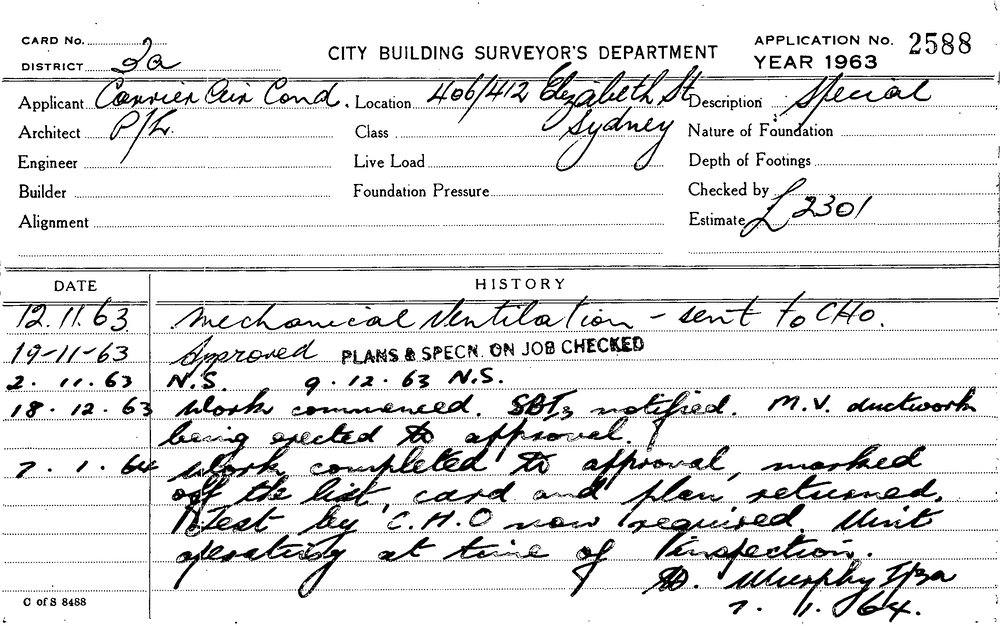 CARD No.
DISTRICT 2a
CITY BUILDING SURVEYOR'S DEPARTMENT
APPLICATION No. 2588
YEAR 1963
Applicant Carrier Air Cond. Location 406/412 Elizabeth St Description Special
Architect P/L. Class Sydney Nature of Foundation
Engineer Live Load Depth of Footings
Builder Foundation Pressure Checked by
Alignment Estimate £2301
DATE HISTORY
12.11.63 Mechanical Ventilation - sent to CHO.
19-11-63 Approved PLANS & SPECN. ON JOB CHECKED
2. 11. 63 N.S. 9. 12. 63 N.S.
18. 12. 63 Work commenced. notified. M.V. ductwork
being erected to approval.
7. 1. 64 Work completed to approval, marked
off the list, card and plan returned.
Test by C.H.O now required. Unit
operating at time of inspection.
Murphy
7. 1. 64.
C of S 8488